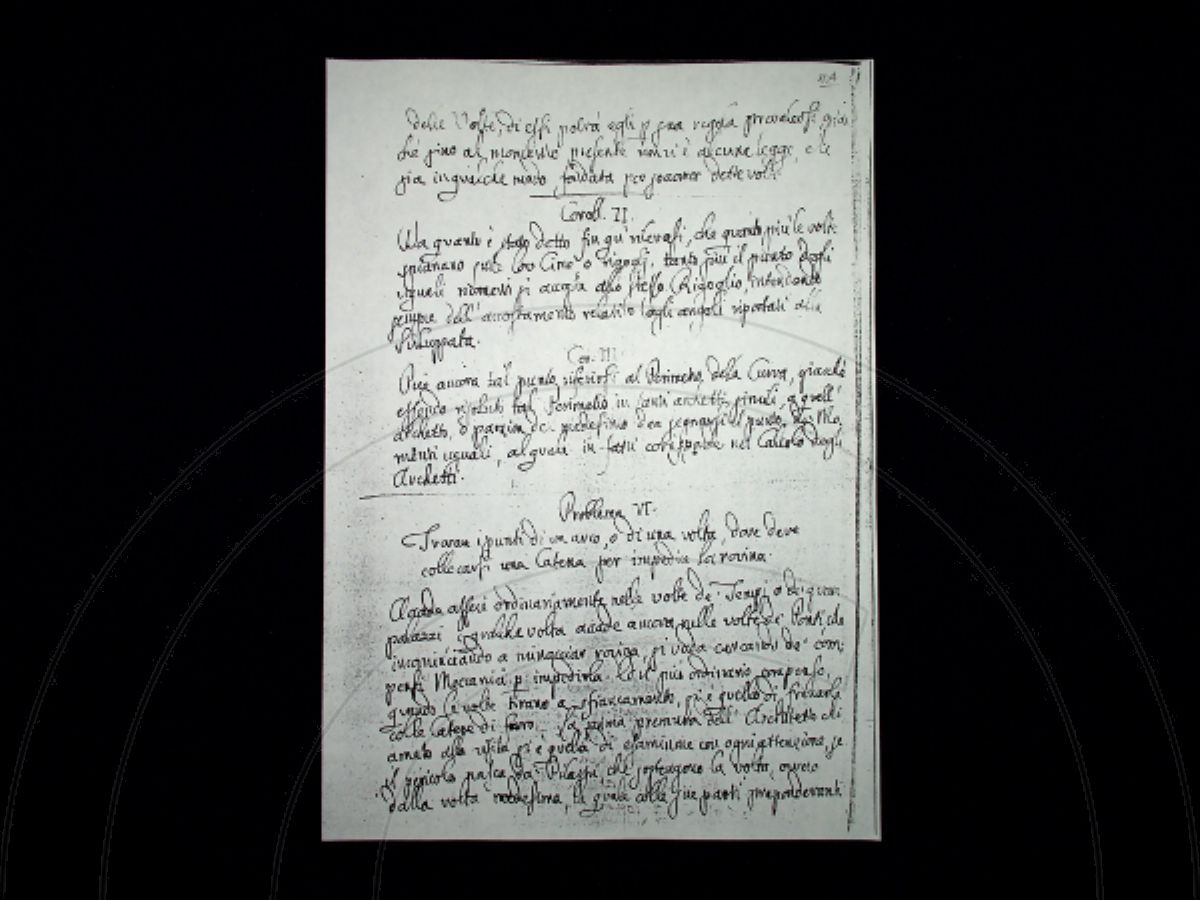 delle Volte, di essi potrà egli p sua regola prevalersi già
ché sino al momento presente non vi è alcuna legge, che
sia in qualche modo fondata per delle volte
Coroll. II.
Da quanto è stato detto fin qui rilevasi, che quanto più le volte
spianano sulle loro Cime o rigogli, tanto più il punto degli
uguali momenti si accosta allo stesso Rigoglio, intendendo
sempre dell'accostamento relativo agli angoli riportati alla
Sviluppata.
Cor. III.
Può ancora tal punto riferirsi al Perimetro della Curva, giacché
essendo risoluto tal Perimetro in tanti archetti simili, a quell'
archetto, o porzion del medesimo dee segnarsi il punto de' Mo-
menti uguali, al quale in fatti corrisponde nel Calcolo degli
Archetti.
Problema VI.
Trovar i punti di un arco, o di una volta, dove deve
collocarsi una Catena per impedir la rovina.
Accade assai ordinariamente nelle volte de' Tempj o de' gran
palazzi e qualche volta accade ancora nelle volte de' Ponti che
incominciando a minacciar rovina, si vada cercando de' com-
pensi Meccanici p impedirla. Ed il più ordinario compenso,
quando le volte tirano a sfiancamento, si è quello di frenarle
colle Catene di ferro. La prima premura dell' Architetto chi
amato alla visita si è quella di esaminare con ogni attenzione, se
il pericolo nasca da' Pilastri, che sostengono la volta, ovvero
dalla volta medesima, la quale colle sue parti preponderanti